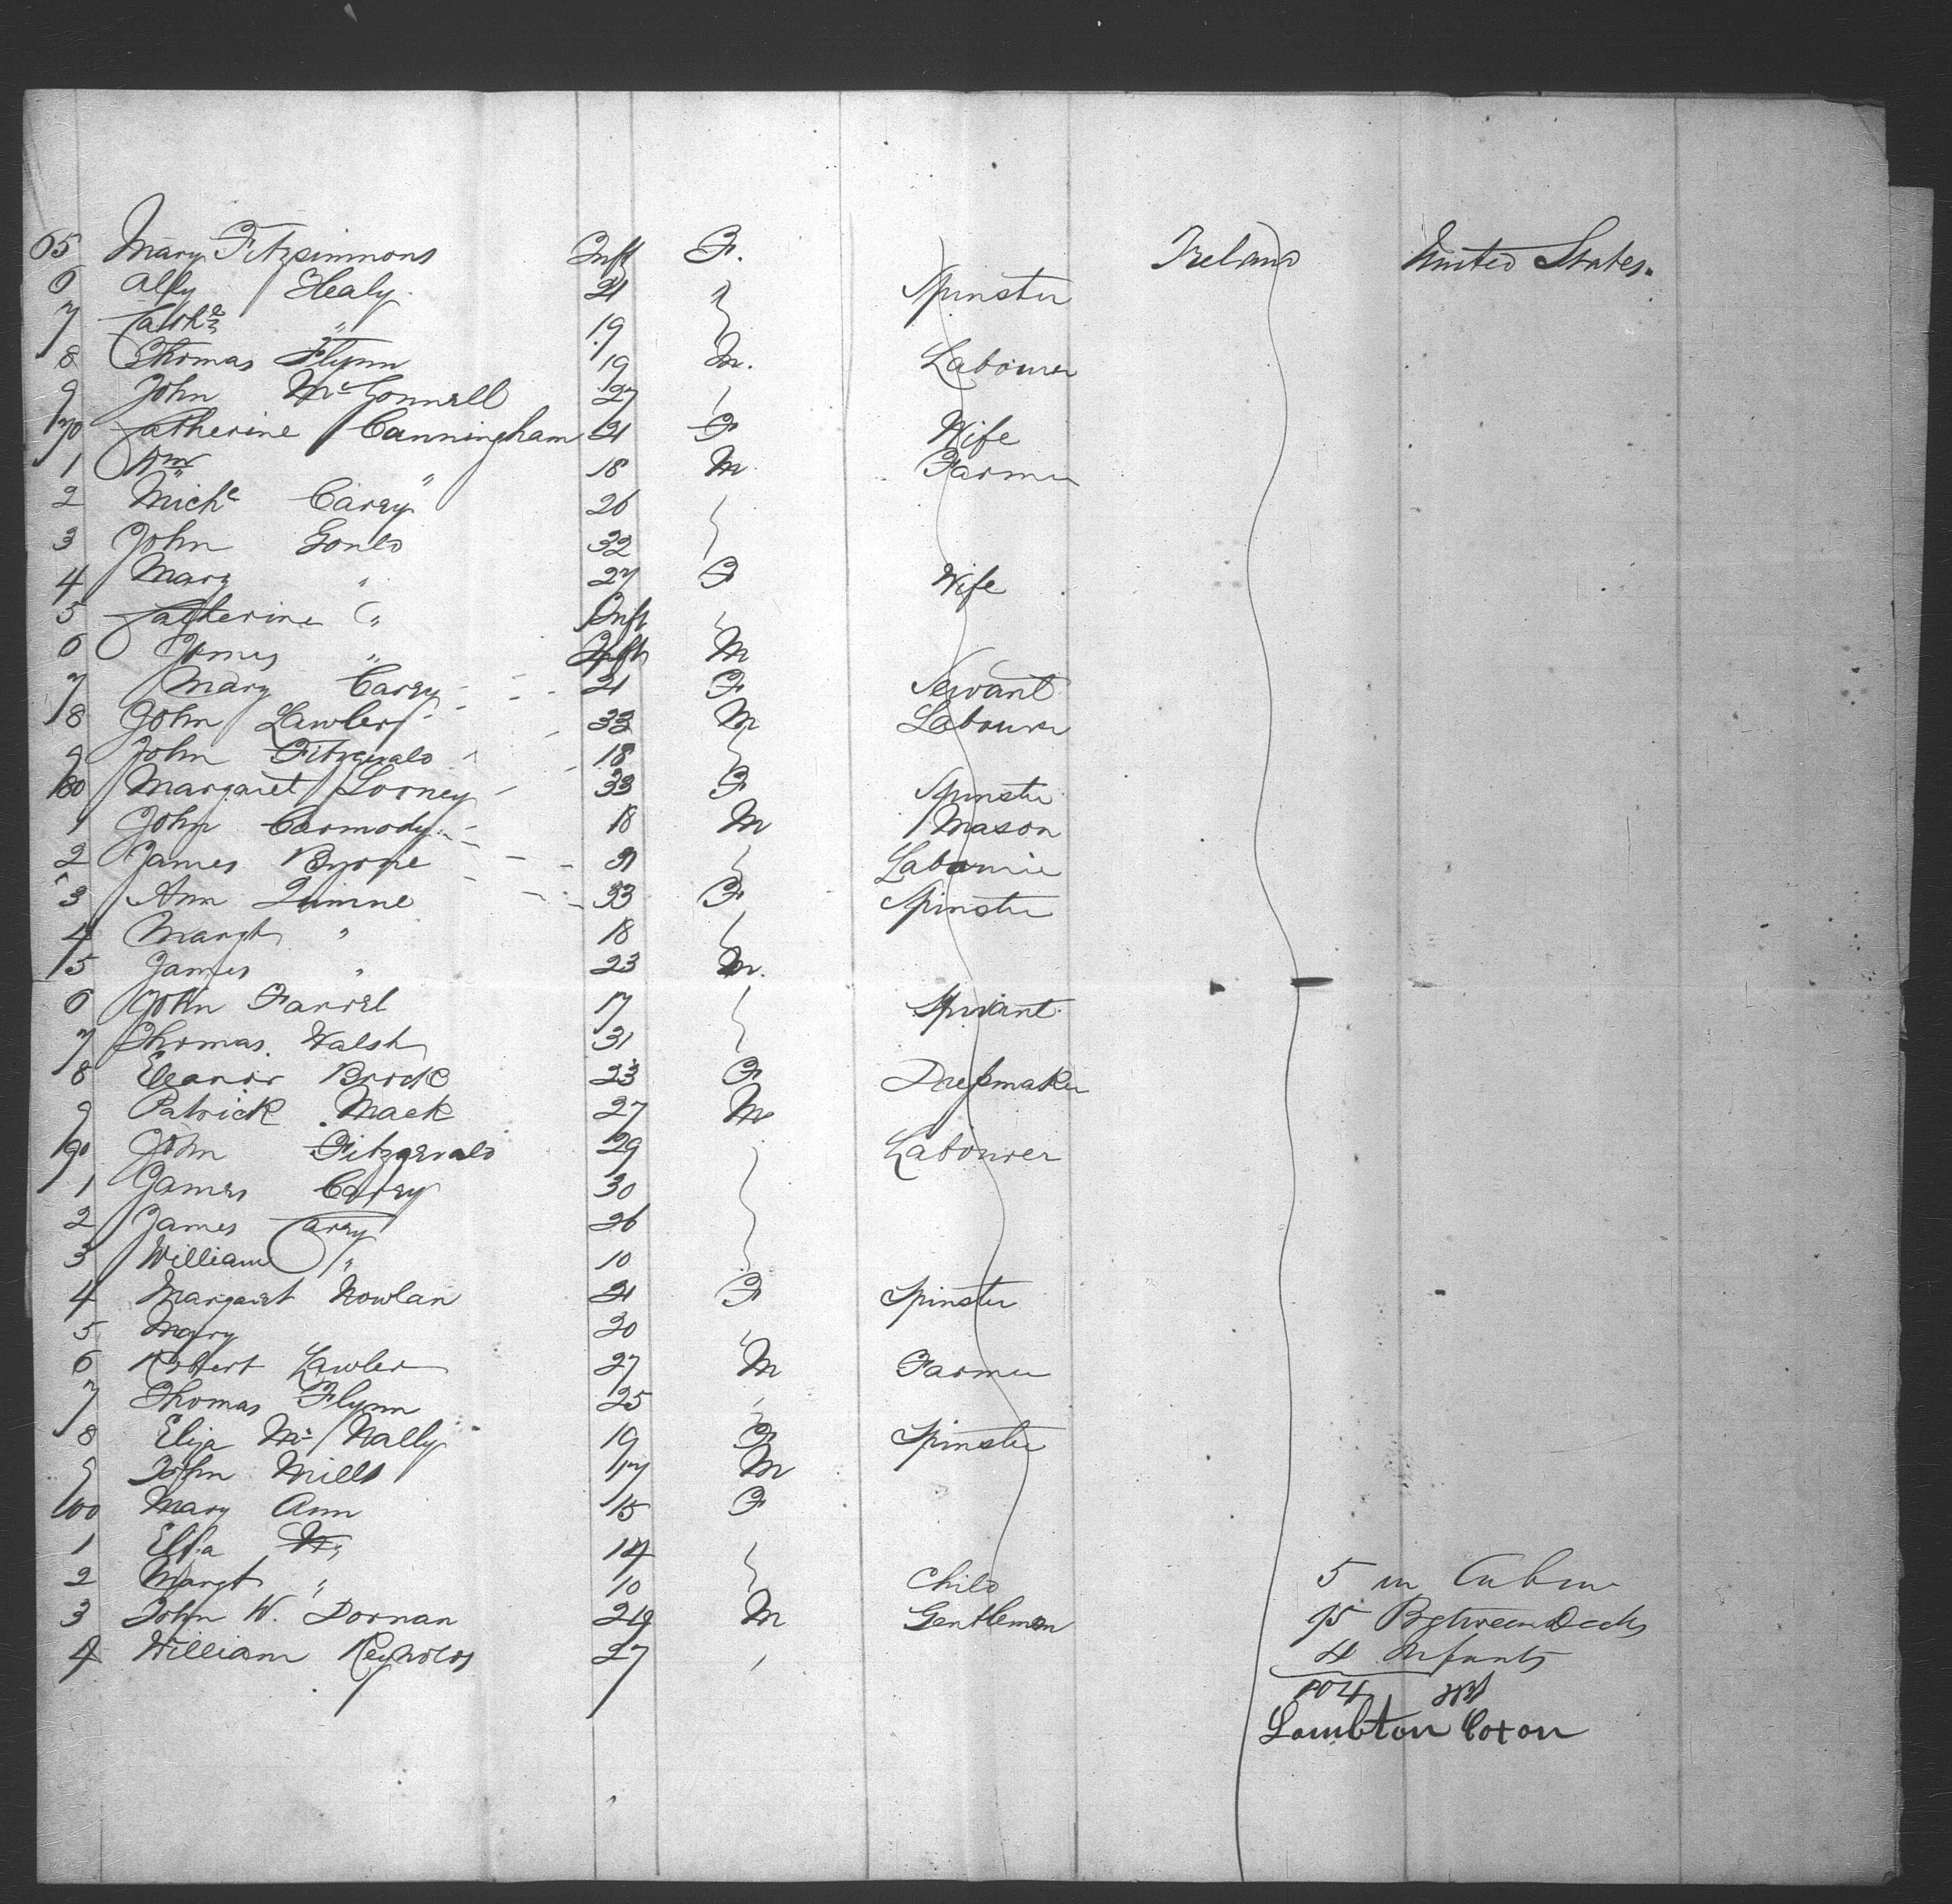 65 Mary Fitzsimmons Inft F. Ireland United States.
6 Ally Healy 21 " Spinster
7 Cathe " 19
8 Thomas Flynn 19 M. Labourer
9 John McGonnell 27
170 Catherine Cunningham 21 F Wife
1 Wm " 18 M Farmer
2 Michl Carey 26
3 John Gould 32
4 Mary " 27 F Wife
5 Catherine " Inft
6 James " Inft M
7 Mary Carey 21 F Servant
8 John Lawler 33 M Labourer
9 John Fitzgerald 18
180 Margaret Looney 33 F Spinster
1 John Carmody 18 M Mason
2 James Byrne 31 Labourer
3 Ann Quinne 33 F Spinster
4 Margt " 18
5 James " 23 M.
6 John Farrel 17 Servant
7 Thomas Walsh 31
8 Eleanor Brock 23 F Dressmaker
9 Patrick Mack 27 M
190 John Fitzgerald 29 Labourer
1 James Carey 30
2 James Carey 26
3 William " 10
4 Margaret Nowlan 21 F Spinster
5 Mary 30
6 Robert Lawler 27 M Farmer
7 Thomas Flynn 25
8 Eliza Mc Nally 19 F Spinster
9 John Mills 17 M
100 Mary Ann 15 F
1 Eliza 14
2 Margt " 10 Child
3 John W. Dornan 29 M Gentleman
4 William Reynolds 27
5 in Cabin
95 Between Decks
4 Infants
104
Lambton Coxon